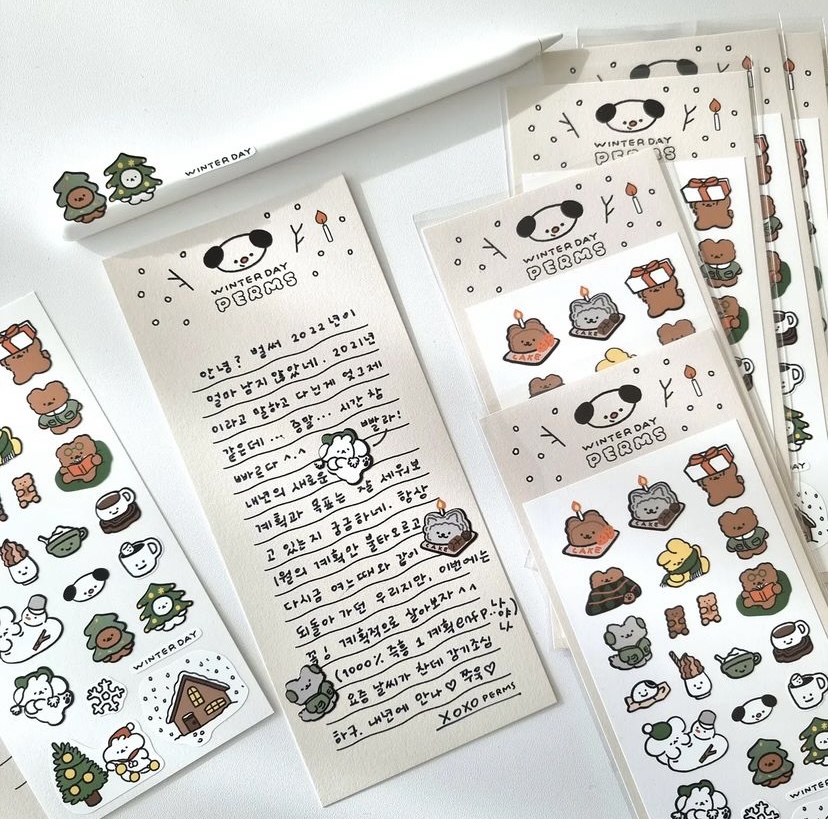 WINTER DAY
WINTER DAY
PERMS
안녕? 벌써 2022년이
얼마 남지 않았네. 2021년
이라고 말하고 다닌게 엊그제
같은데... 증말... 시간 참
빠르다 ^^
빨라!
내년의 새로운
계획과 목표는 잘 세워보
고 있는지 궁금하네. 항상
1월의 계획만 불타오르고
다시금 여느때와 같이
되돌아 가던 우리지만, 이번에는
꼭! 계획적으로 살아보자 ^^
(1000% 즉흥 & 계획 enfp.나야나)
요즘 날씨가 찬데 감기조심
하구. 내년에 만나♡ 쭈욱♡
XOXO PERMS
WINTER DAY
PERMS
WINTER DAY
PERMS
CAKE
CAKE
WINTER DAY
PERMS
CAKE
CAKE
CAKE
WINTER DAY
WINTER DAY